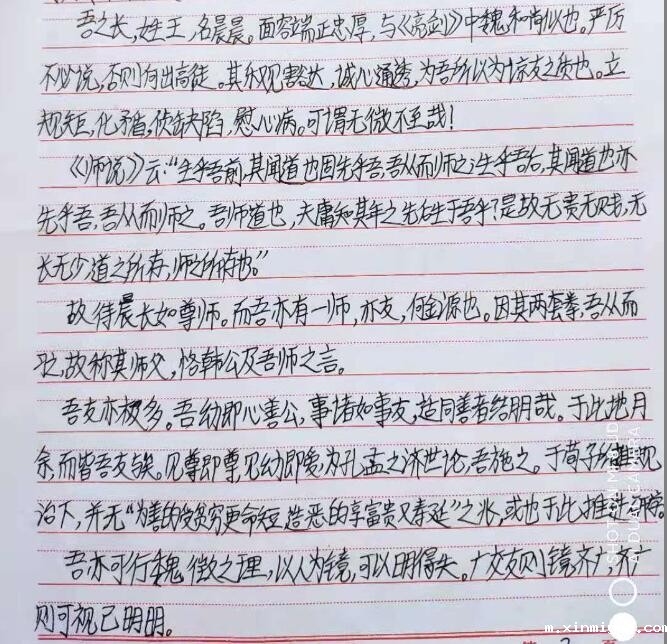 吾之长，姓王，名晨晨。面容端正忠厚，与《亮剑》中魏和尚似也。严厉
不必说，否则何出高徒。其乐观豁达，诚心通透，为吾所以为惊友之质也。立
规矩，化矛盾，侦缺陷，慰心病。可谓无微不至哉！
《师说》云："生乎吾前，其闻道也固先乎吾，吾从而师之；生乎吾后，其闻道也亦
先乎吾，吾从而师之。吾师道也，夫庸知其年之先后生于吾乎？是故无贵无贱，无
长无少，道之所存，师之所存也。"
故待晨长如尊师。而吾亦有一师，亦友，何金源也。因其两套拳，吾从而
学，故称其师父，恪韩公及吾师之言。
吾友亦极多。吾幼即心善公，事诸如事友，造同善者结朋哉。于此地月
余，而皆吾友矣。见尊即尊，见幼即爱，为孔孟之济世论，吾施之。于荀子
治下，并无"为善的受贫穷更命短，造恶的享富贵又寿延"之兆，或也于此推进
吾亦可行魏徵之理，以人为镜，可以明得失。广交友则镜齐广，齐广
则可视己明明。
SHOT ON MI 8 UD
AI DUAL CAMERA
m.xinmi.com